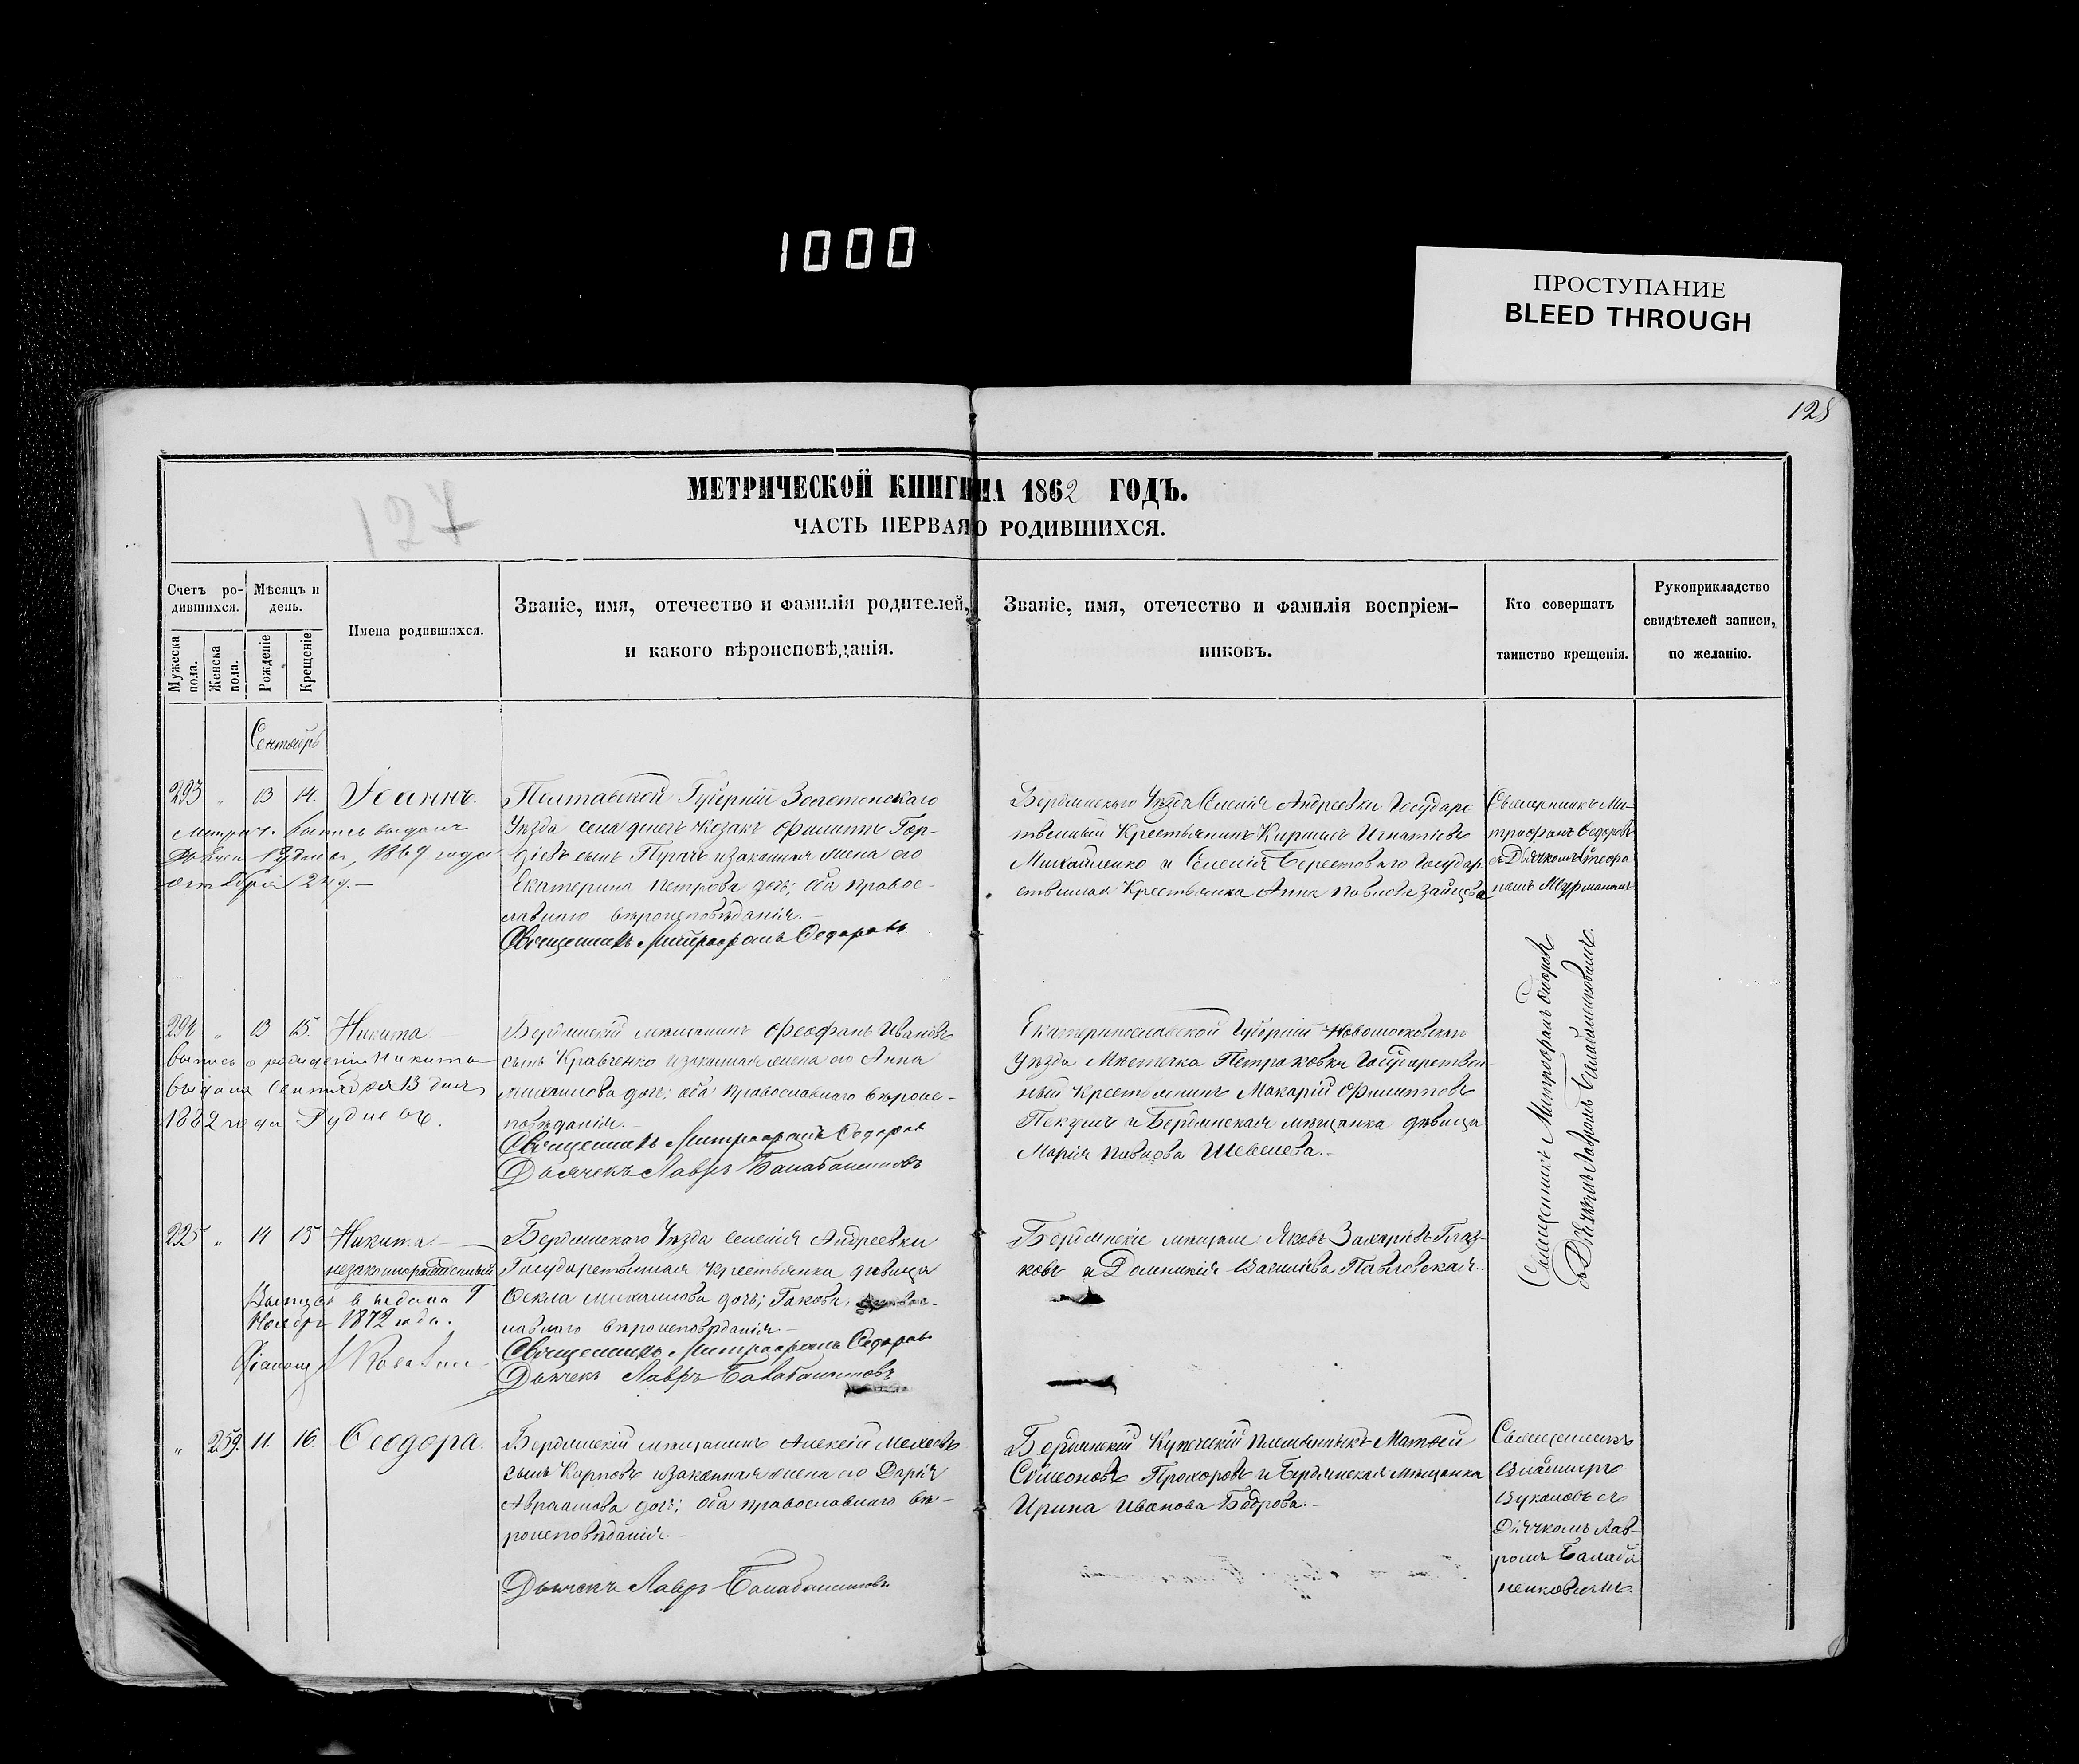 1000
ПРОСТУПАНИЕ
BLEED THROUGH
128
127
МЕТРИЧЕСКОЙ КНИГИ НА 1862 ГОДЪ.
ЧАСТЬ ПЕРВАЯ О РОДИВШИХСЯ.
Счетъ ро-
дившихся.
Мужеска пола.
Женска пола.
Мѣсяцъ и
день.
Рожденіе
Крещеніе
Имена родившихся.
Званіе, имя, отечество и фамилія родителей,
и какого вѣроисповѣданія.
Званіе, имя, отечество и фамилія воспріем-
никовъ.
Кто совершатъ
таинство крещенія.
Рукоприкладство
свидѣтелей записи,
по желанію.
Сентябрь
293 " 13 14. Іоаннъ.
выпись выдана
1869 года
октября 24 д.
Полтавской Губерніи Золотонскаго
Уѣзда села козакъ Филиппъ Гор-
дѣевъ сынъ Пугачъ и законная жена его
Екатерина Петрова дочь; оба правос-
лавнаго вѣроисповѣданія.
Священникъ Митрофанъ Федоровъ
Бердянскаго Уѣзда Селенія Андреевки Государс
твенный Крестьянинъ Кирилъ Игнатіевъ
Михайленко и Селенія Берестоваго Государ
ственная Крестьянка Анна Павлова Зайцева
Священникъ Ми-
трофанъ Федоровъ
съ Дьячкомъ Стефа
номъ
294 " 13 15. Никита
выпись о рожденіи Никиты
выдана Сентября 13 дня
1882 года
Бердянскій мѣщанинъ Феофанъ Ивановъ
сынъ Кравченко и законная жена его Анна
Михаилова дочь; оба православнаго вѣроис-
повѣданія.
Священникъ Митрофанъ Федоровъ
Дьячекъ Лавръ Балабаненковъ
Екатеринославской Губерніи Новомосковскаго
Уѣзда Мѣстечка Петраковки Государствен
ный Крестьянинъ Макарій Филипповъ
Пекунъ и Бердянская мѣщанка дѣвица
Марія Павлова Шевелева.
Священникъ Митрофанъ Федоровъ
съ Дьячкомъ Лавромъ Балабаненковымъ.
225 " 14 15 Никита.
незаконнорожденный
Выпись выдана 9
Ноября 1872 года.
Бердянскаго Уѣзда селенія Андреевки
Государственная крестьянка дѣвица
Ѳекла Михаилова дочь; Гакова,
лавнаго вѣроисповѣданія.
Священникъ Митрофанъ Федоровъ
Дьячекъ Лавръ Балабаненковъ
Бердянскіе мѣщане Яковъ Захаріевъ Глаз-
ковъ и Домникія Василіева Павловская.
" 259. 11. 16. Ѳеодора.
Бердянскій мѣщанинъ Алексій
сынъ Карповъ и законная жена его Дарія
Авраамова дочь; оба православнаго вѣ-
роисповѣданія.
Дьячекъ Лавръ Балабаненковъ
Бердянскій Купеческій племянникъ Матвей
Симеоновъ Прохоровъ и Бердянская мѣщанка
Ирина Иванова Боброва.
Священникъ
Владимиръ
Вукановъ съ
Дьячкомъ Лав-
ромъ Балаба
ненковымъ.